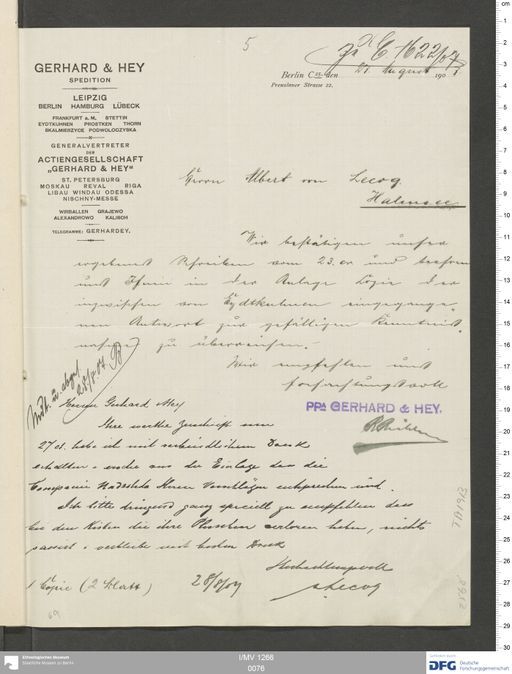 5
zu E. 1622/07
GERHARD & HEY
SPEDITION
LEIPZIG
BERLIN HAMBURG LÜBECK
FRANKFURT a. M. STETTIN
EYDTKUHNEN PROSTKEN THORN
SKALMIERZYCE PODWOLOCZYSKA
GENERALVERTRETER
DER
ACTIENGESELLSCHAFT
„GERHARD & HEY“
ST. PETERSBURG
MOSKAU REVAL RIGA
LIBAU WINDAU ODESSA
NISCHNY-MESSE
WIRBALLEN GRAJEWO
ALEXANDROWO KALISCH
TELEGRAMME: GERHARDEY.
Berlin C. den 27. August 1907
Prenzlauer Strasse 22.
Herrn Albert von Lecoq
Halensee
Wir bestätigen unser
ergebenst Schreiben vom 23. cr und
uns Ihnen in der Anlage Copie der
inzwischen von Eydtkuhnen eingegange-
nen Antwort zur gefälligen Kenntnis-
nahme zu überreichen.
Wir empfehlen uns
hochachtungsvoll
PPA GERHARD & HEY.
28/8 07.
Herren Gerhard & Hey
Ihre werthe Zuschrift vom
27 d. habe ich mit verbindlichem Dank
erhalten u. ersehe aus der Einlage dass die
Compagnie Nadeshda Ihren Vorschlägen entsprechen wird.
Ich bitte dringend ganz speciell zu empfehlen dass
bei den Kisten die ihre Plomben verloren haben, nichts
passirt u. verbleibe mit bestem Dank
Hochachtungsvoll
1 Copie (2 Blatt)
28/8/07
A. Lecoq
69
TA 1913
Ethnologisches Museum
Staatliche Museen zu Berlin
I/MV 1266
0076
DFG
Deutsche
Forschungsgemeinschaft
cm
1
2
3
4
5
6
7
8
9
10
11
12
13
14
15
16
17
18
19
20
21
22
23
24
25
26
27
28
29
30